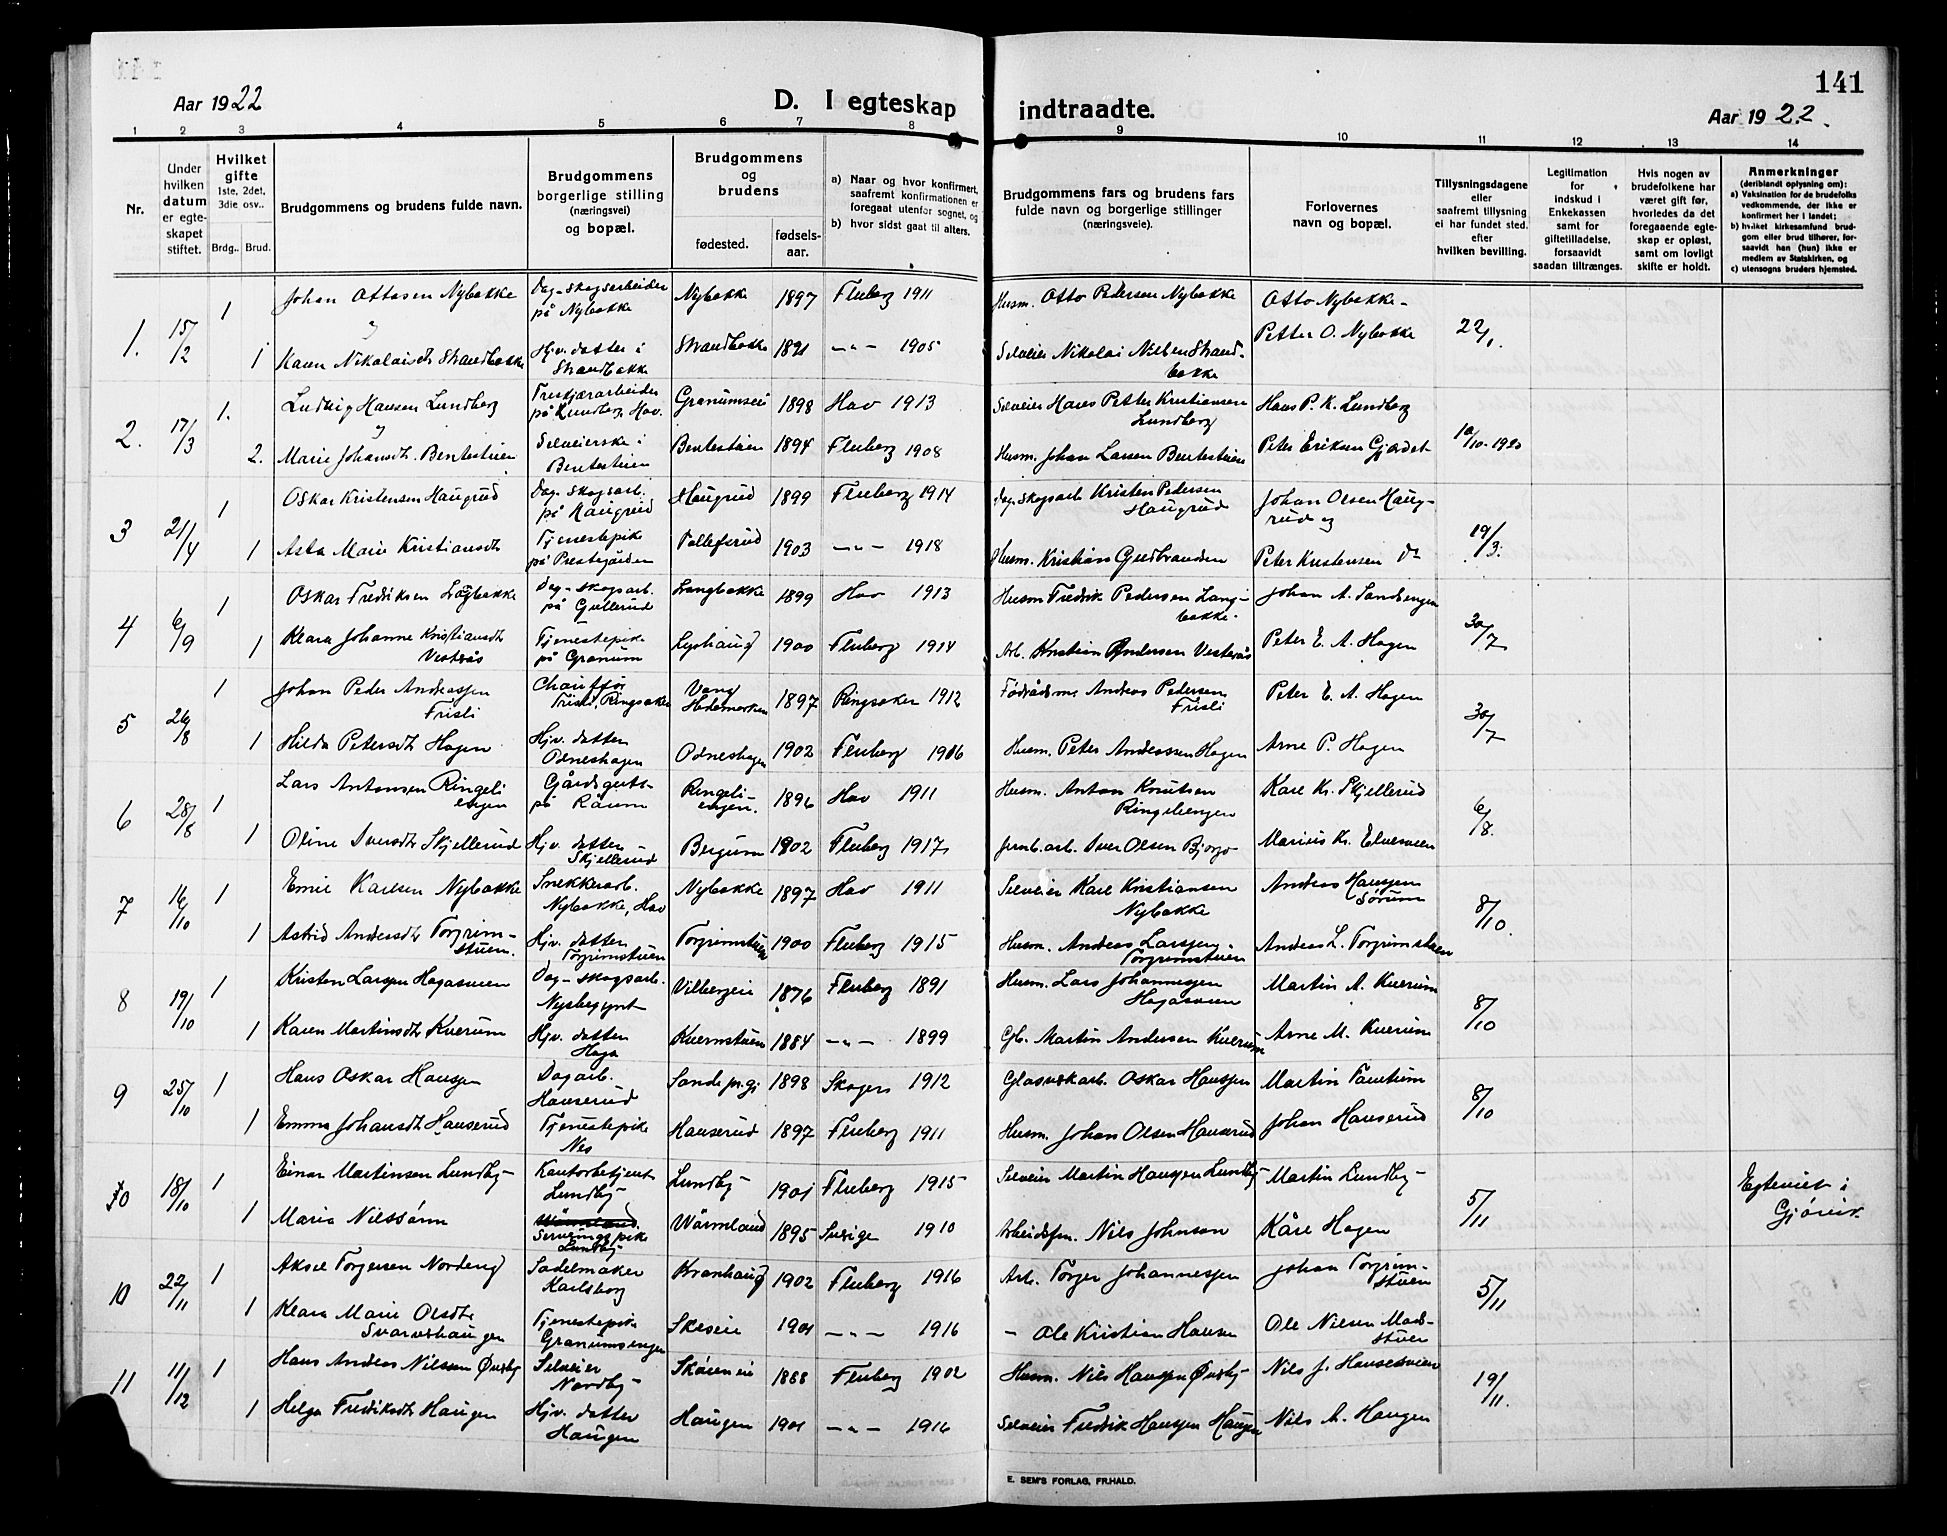 141
Aar 1922
D. I egteskap indtraadte.
Aar 1922.
1 2 3 4 5 6 7 8 9 10 11 12 13 14
Nr.
Under hvilken datum er egteskapet stiftet.
Hvilket gifte
1ste, 2det, 3die osv..
Brdg.. Brud.
Brudgommens og brudens fulde navn.
Brudgommens borgerlige stilling (næringsvei) og bopæl.
Brudgommens og brudens
fødested. fødselsaar.
a) Naar og hvor konfirmert, saafremt konfirmationen er foregaat utenfor sognet, og
b) hvor sidst gaat til alters.
Brudgommens fars og brudens fars fulde navn og borgerlige stillinger (næringsveie).
Forlovernes navn og bopæl.
Tillysningsdagene eller saafremt tillysning ei har fundet sted. efter hvilken bevilling.
Legitimation for indskud i Enkekassen samt for giftetilladelse, forsaavidt saadan tiltrænges.
Hvis nogen av brudefolkene har været gift før, hvorledes da det foregaaende egteskap er opløst, samt om lovligt skifte er holdt.
Anmerkninger
(deriblandt oplysning om):
a) Vaksination for de brudefolks vedkommende, der ikke er konfirmert her i landet;
b) hvilket kirkesamfund brudgom eller brud tilhører, forsaavidt han (hun) ikke er medlem av Statskirken, og
c) utensogns bruders hjemsted.
1. 15/2 1 Johan Ottosen Nybakke Dag-skogsarbeider på Nybakke Nybakke 1897 Fluberg 1911 Husm. Otto Pedersen Nybakke Otto Nybakke- 22/1.
1 Karen Nikolaisdt Strandbakke Hjv. datter i Strandbakke Strandbakke 1891 -"- 1905 Selveier Nikolai Nilsen Strandbakke Petter O. Nybakke
2. 17/3 1. Ludvig Hansen Lundberg på Lundberg, Hov. Granumseie 1898 Hov 1913 Selveier Hans Petter Kristiansen Lundberg Hans P. K. Lundberg 10/10-1920
2. Marie Johansdt. Bentestuen Selveierske i Bentestuen Bentestuen 1894 Fluberg 1908 Husm. Johan Larsen Bentestuen Peter Eriksen Gjærdet
3 21/4 1 Oskar Kristensen Haugrud Dag-skogsarb. på Haugrud Haugrud 1899 Fluberg 1914 Dag.skogsarb Kristen Pedersen Haugrud Johan Olsen Haugrud og 19/3.
1 Asta Marie Kristiansdt Tjenestepike på Prestegården Tollefsrud 1903 -"- 1918 Husm. Kristian Gudbrandsen Peter Kristensen do
4 6/9 1 Oskar Fredriksen Langbakke Dag-skogsarb. på Gullerud Langbakke 1899 Hov 1913 Husm Fredrik Pedersen Langbakke. Johan A. Sandengen 30/7
1 Klara Johanne Kristiansdt Vesterås Tjenestepike på Granum Lyshaug 1900 Fluberg 1914 Arb. Kristian Andersen Vesterås Peter E. A. Hagen
5 26/8 1 Johan Peder Andreassen Frisli Chauffør Frisli, Ringsaker Vang Hedemarken 1897 Ringsaker 1912 Føderådsm Andreas Pedersen Frisli Peter E. A. Hagen 30/7
1 Hilda Petersdt Hagen Hjv. datter Odneshagen Odneshagen 1902 Fluberg 1916 Husm. Peter Andreassen Hagen Arne P. Hagen
6 28/8 1 Lars Antonsen Ringelien­gen Gårdsgutt på Råum Ringeliengen. 1896 Hov 1911 Husm. Anton Knutsen Ringeliengen Kare Kr. Skjellerud 6/8.
1 Oline Iversdt Skjellerud Hjv. datter Skjellerud Bergum 1902 Fluberg 1917 Jernb.arb. Iver Olsen Bjørgo Marius Kr. Elvesveen
7 16/10 1 Emil Karlsen Nybakke Snekkerarb. Nybakke, Hov Nybakke 1897 Hov 1911 Selveier Karl Kristiansen Nybakke Andreas Hanssen Sørum 8/10.
1 Astrid Andersdt Torgrimstuen. Hjv. datter Torgrimstuen Torgrimstuen 1900 Fluberg 1915 Husm. Andreas Larssen Torgrimstuen Andreas L. Torgrimstuen
8 19/10 1 Kristen Larssen Hagasveen Dag-skogsarb. Nysbegynt Vilbergeie 1876 Fluberg 1891 Husm. Lars Johannessen Hagasveen Martin A. Kværum 8/10
1 Karen Martinsdt Kværum Hjv. datter Haga Kvernstuen 1884 -"- 1899 Gb. Martin Andersen Kværum Arne M. Kværum
9 25/10 1 Hans Oskar Hanssen Dagarb. Hauserud Sande pr.gj 1898 Skoger 1912 Glasverkarb. Oskar Hanssen Martin 8/10
1 Emma Johansdt Hauserud Tjenestepike Nes Hauserud 1897 Fluberg 1911 Husm. Johan Olsen Hauserud Johan Hauserud
10 18/10 1 Einar Martinsen Lundby Kontorbetjent Lundby Lundby 1901 Fluberg 1915 Selveier Martin Hanssen Lundby Martin Lundby 5/11 Egteviet i Gjøvik
1 Maria Nilssønn Wärmland Serveringspike Lundby Wärmland 1895 Sverige 1910 Arbeidsfm. Nils Johnson Kåre Hagen
10 22/11 1 Aksel Torgersen Nordeng Sadelmaker Karlsborg Kronhaug 1902 Fluberg 1916 Arb. Torger Johannessen Johan Torgrimstuen 5/11
1 Klara Marie Olsdt Svarverhaugen Tjenestepike Granumsengen Skoeie 1901 -"- 1916 - Ole Kristian Hansen Ole Nilsen Madsstuen
11 11/12 1 Hans Andreas Nilssen Øvreby Selveier Nordby Skøieneie 1888 Fluberg 1902 Husm. Nils Hanssen Øvreby Nils J. Hansesveen 19/11.
1 Helga Fredriksdt Haugen Hjv. datter Haugen Haugen 1901 -"- 1916 Selveier Fredrik Hanssen Haugen Nils A. Haugen
E. SEM'S FORLAG, FR.HALD.